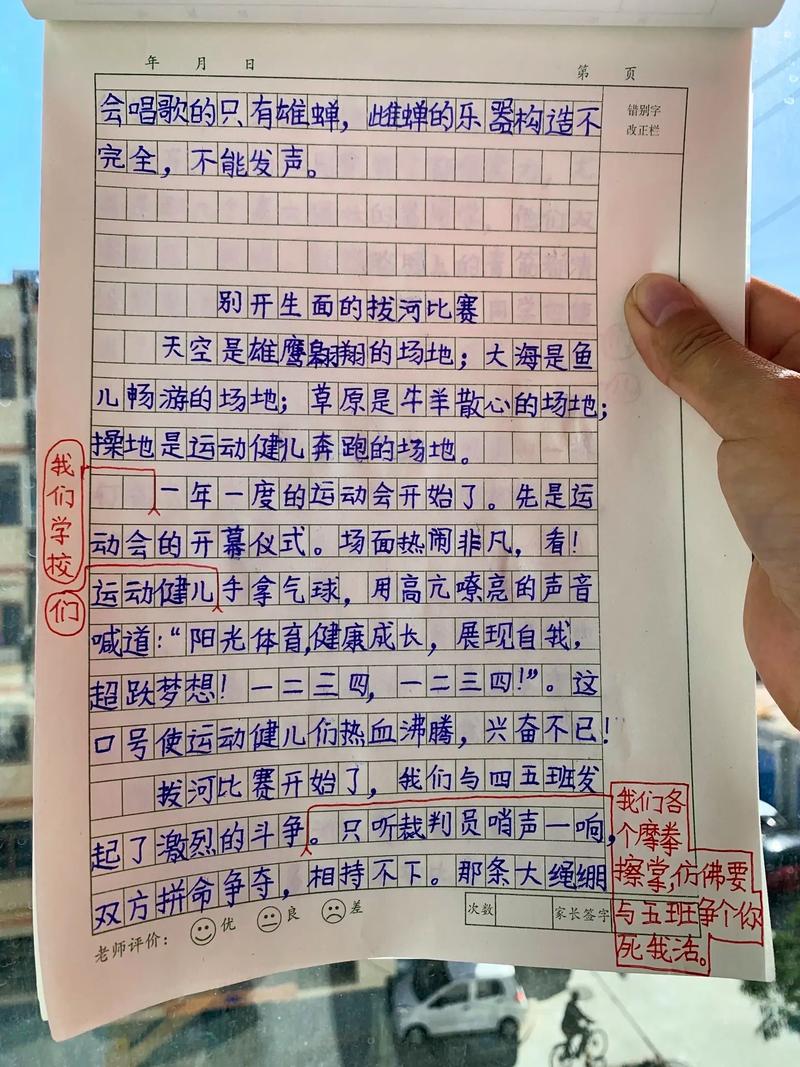 年 月 日
第 页
错别字
改正栏
会唱歌的只有雄蝉，雌蝉的乐器构造不
完全，不能发声。
别开生面的拔河比赛
天空是雄鹰翱翔的场地；大海是鱼
儿畅游的场地；草原是牛羊散心的场地；
操地是运动健儿奔跑的场地。
我们学校
一年一度的运动会开始了。先是运
动会的开幕仪式。场面热闹非凡，看！
们
运动健儿手拿气球，用高亢嘹亮的声音
喊道：“阳光体育，健康成长，展现自我，
超跃梦想！一二三四，一二三四！”。这
口号使运动健儿们热血沸腾，兴奋不已！
拔河比赛开始了，我们与四五班发
起了激烈的斗争。只听裁判员哨声一响，
双方拼命争夺，相持不下。那条大绳绷
我们各
个摩拳
擦掌，仿佛要
与五班争个你
死我活。
老师评价： 优 良 差
次数 家长签字